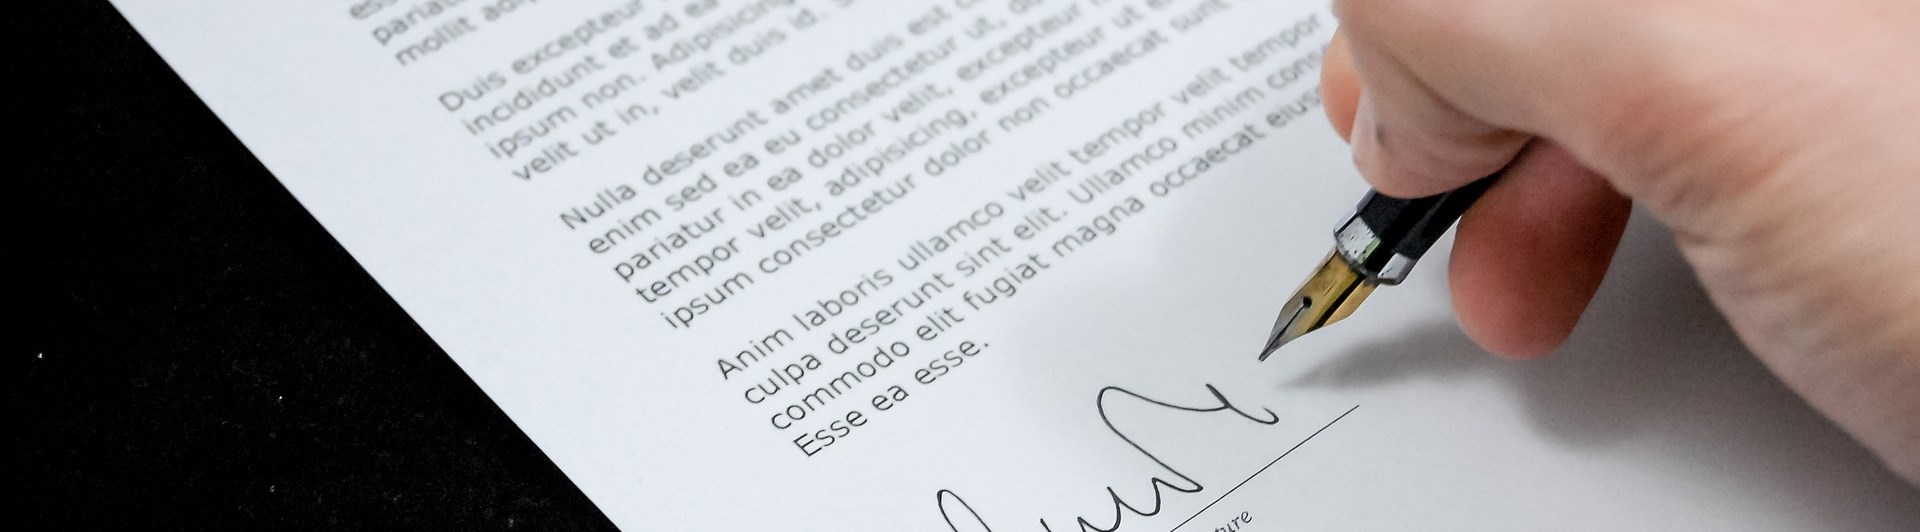 mollit
Duis excepteur
incididunt et ad ea
ipsum non. Adipisicing
velit ut in, velit duis id.
Nulla deserunt amet duis est
enim sed ea eu consectetur ut,
pariatur in ea dolor velit, excepteur
tempor velit, adipisicing, excepteur ut
ipsum consectetur dolor non occaecat sunt
Anim laboris ullamco velit tempor velit tempor
culpa deserunt sint elit. Ullamco minim
commodo elit fugiat magna occaecat
Esse ea esse.